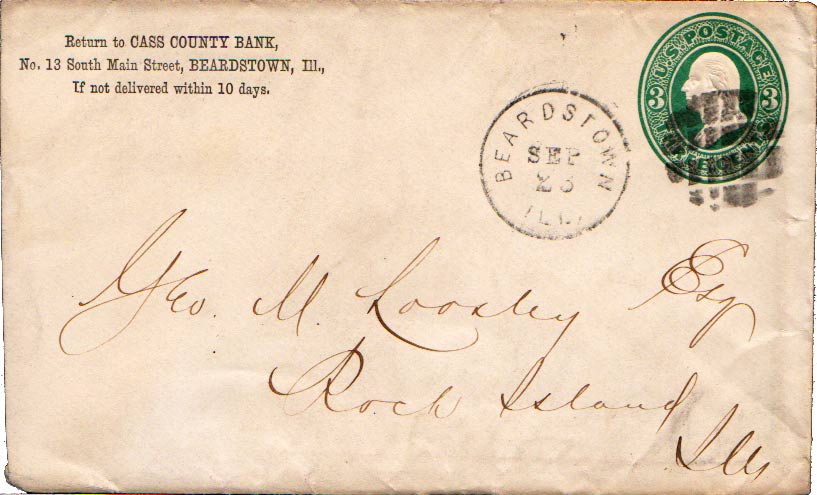 Return to CASS COUNTY BANK,
No. 13 South Main Street, BEARDSTOWN, Ill.,
If not delivered within 10 days.
U.S. POSTAGE
3 3
THREE CENTS
BEARDSTOWN
SEP
23
ILL.
Geo. M. Loosley Esq
Rock Island
Ills